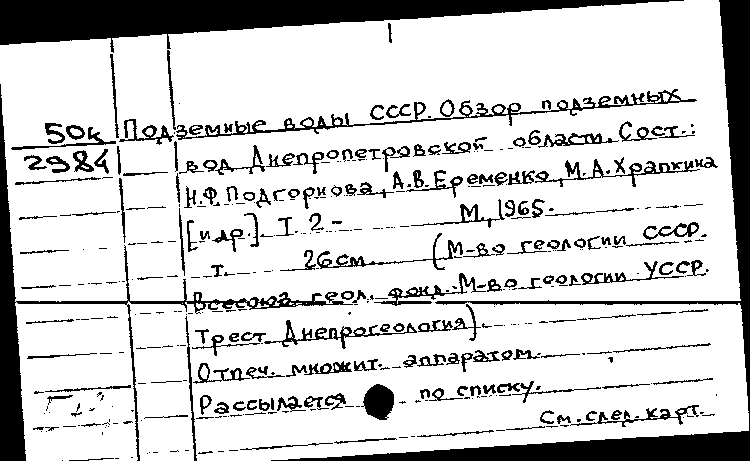 50к Подземные воды СССР. Обзор подземных
2984 вод Днепропетровской области. Сост.:
Н.Ф. Подгорнова, А.В. Еременко, М.А. Храпкина
[и др.]. Т. 2 - М., 1965.
т. 26 см. (М-во геологии СССР.
Всесоюз. геол. фонд. М-во геологии УССР.
Трест. Днепрогеология).
Отпеч. множит. аппаратом.
Рассылается по списку.
См. след. карт.